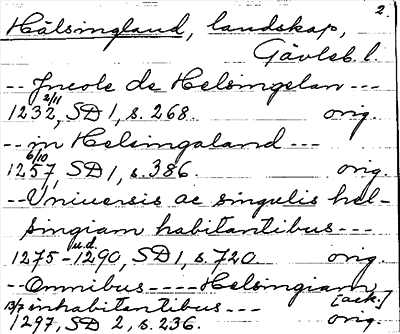 2.
Hälsingland, landskap,
Gävleb. l.
-- Incole de Helsingelan ---
2/11
1232, SD 1, s. 268. orig.
-- in Helsingaland ---
6/10
1257, SD 1, s. 386. orig.
-- Uniuersis ac singulis hel-
singiam habitantibus ---
u.d.
1275-1290, SD 1, s. 720. orig.
-- Omnibus ---- Helsingiam
[ack.]
13/7 inhabitantibus ---
1297, SD 2, s. 236. orig.